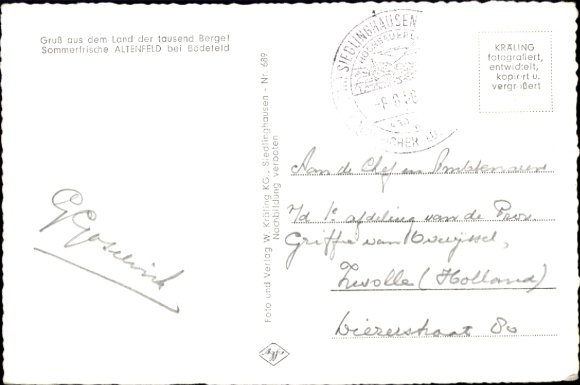 Gruß aus dem Land der tausend Berge!
Sommerfrische ALTENFELD bei Bödefeld
SIEDLINGHAUSEN
KRÄLING
fotografiert,
entwickelt,
kopiert u.
vergrößert
Foto und Verlag W. Kräling KG., Siedlinghausen - Nr. 689
Nachbildung verboten
Aan de Chef en Ambtenaren
v/d 1e afdeling van de Prov.
Griffie van Overijssel,
Zwolle (Holland)
Diezerstraat 80